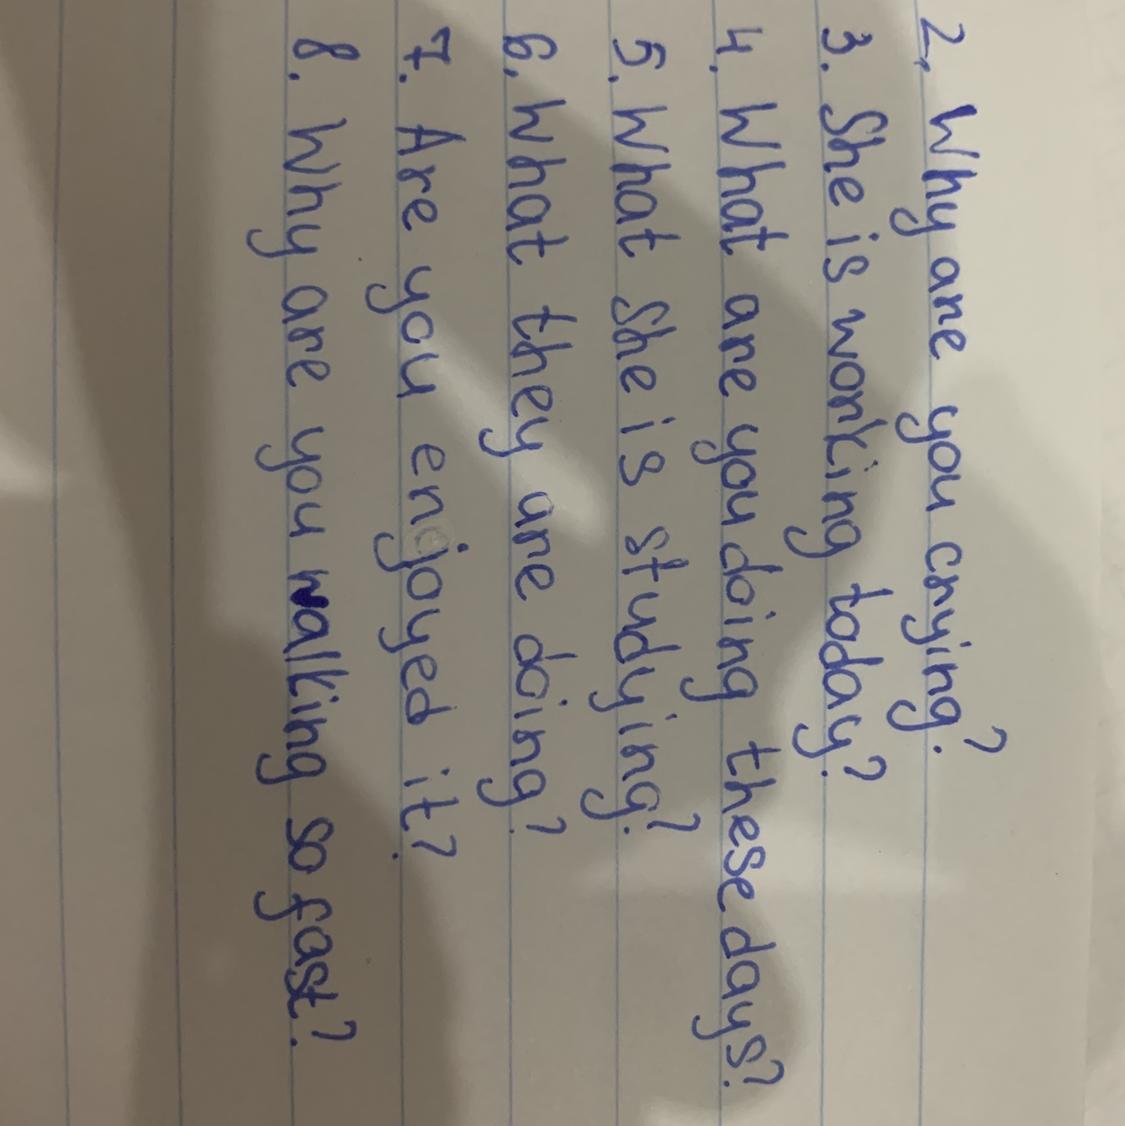 2. Why are you crying?
3. She is working today?
4. What are you doing these days?
5. What she is studying?
6. What they are doing?
7. Are you enjoyed it?
8. Why are you walking so fast?